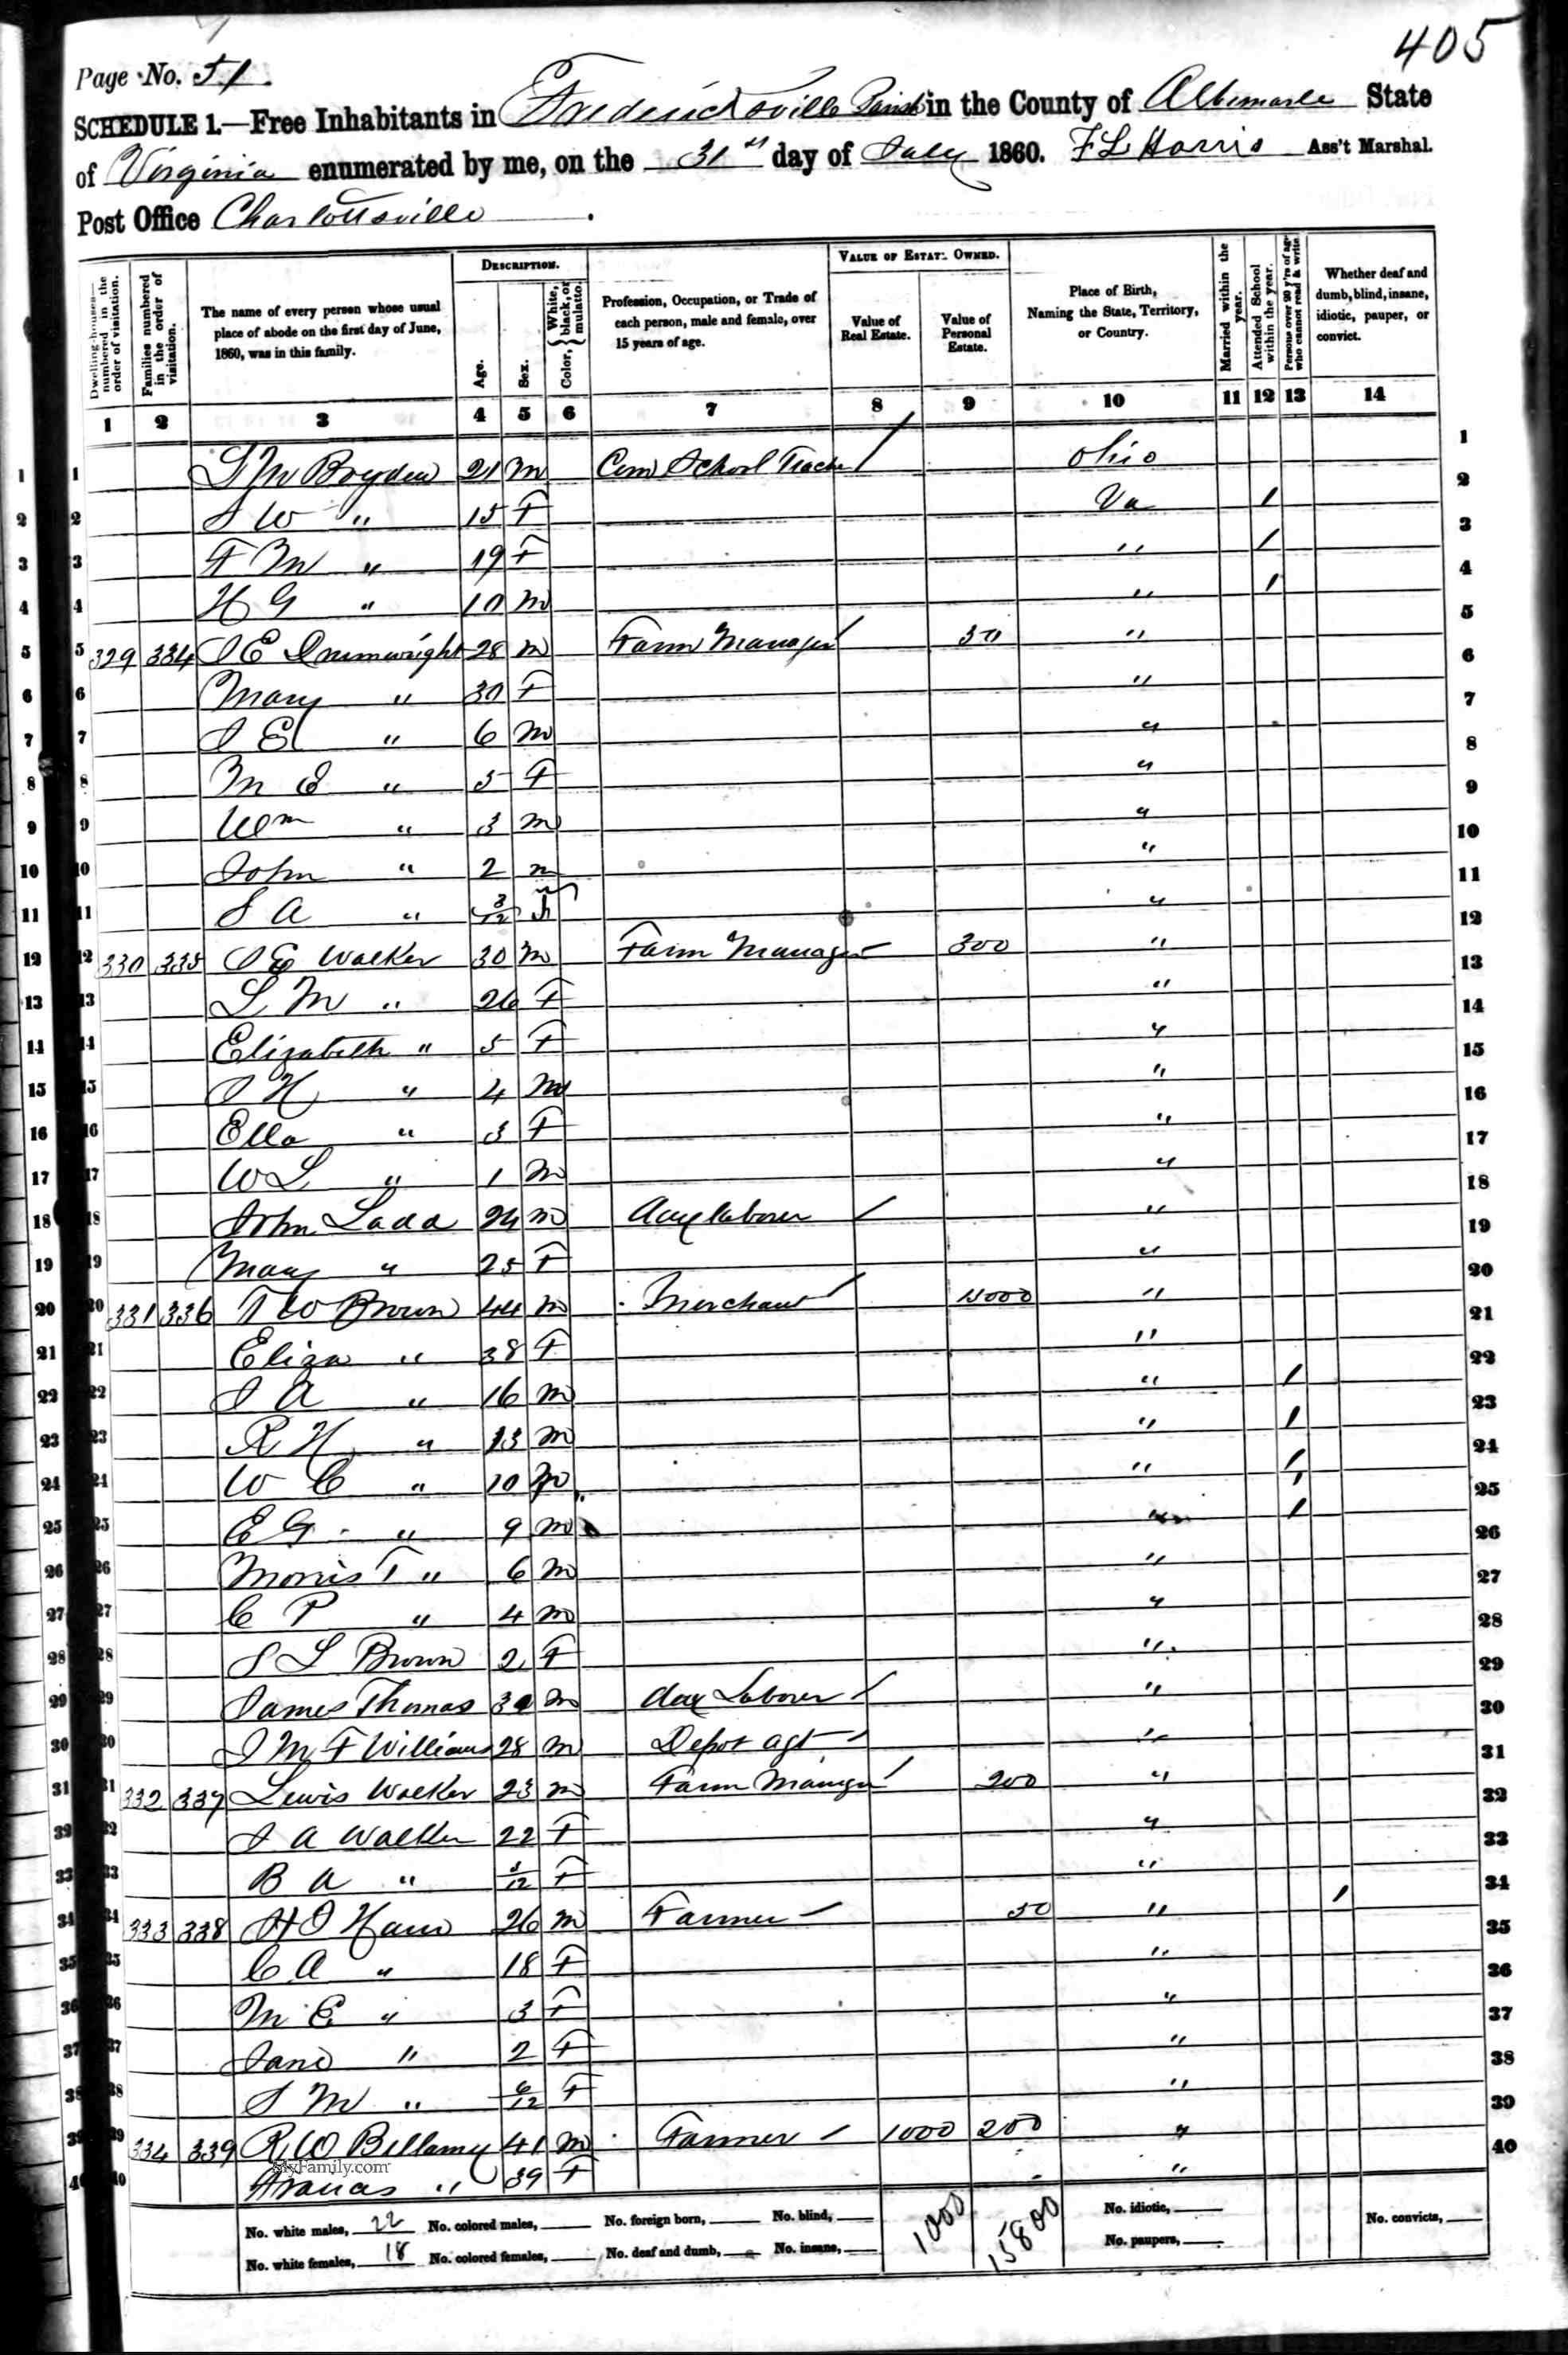 405
Page No. 51.
SCHEDULE 1.—Free Inhabitants in Fredericksville Parish in the County of Albemarle State
of Virginia enumerated by me, on the 31st day of July 1860. F L Harris Ass't Marshal.
Post Office Charlottsville
Dwelling-houses—numbered in the order of visitation.
Families numbered in the order of visitation.
The name of every person whose usual place of abode on the first day of June, 1860, was in this family.
DESCRIPTION.
Age.
Sex.
Color, White, black, or mulatto.
Profession, Occupation, or Trade of each person, male and female, over 15 years of age.
VALUE OF ESTATE OWNED.
Value of Real Estate.
Value of Personal Estate.
Place of Birth, Naming the State, Territory, or Country.
Married within the year.
Attended School within the year.
Persons over 20 y'rs of age who cannot read & write.
Whether deaf and dumb, blind, insane, idiotic, pauper, or convict.
1 2 3 4 5 6 7 8 9 10 11 12 13 14
1 Boyden 21 m Com School Teacher / Ohio 1
2 S W " 15 F Va / 2
3 F M " 19 F " / 3
4 H G " 10 m " / 4
5 329 334 28 m Farm Manager / " 5
6 Mary " 30 F " 6
7 J E " 6 m " 7
8 M E " 5 F " 8
9 Wm " 3 m " 9
10 John " 2 m " 10
11 S A " 3/12 F " 11
12 330 335 J E Walker 30 m Farm Manager 300 " 12
13 L M " 26 F " 13
14 Elizabeth " 5 F " 14
15 J H " 4 m " 15
16 Ella " 3 F " 16
17 W L " 1 m " 17
18 John Ladd 24 m day laborer / " 18
19 Mary " 25 F " 19
20 331 336 T W Brown 44 m Merchant / " 20
21 Eliza " 38 F " 21
22 J A " 16 m " / 22
23 R H " 13 m " / 23
24 W C " 10 m " / 24
25 E G " 9 m " / 25
26 Morris T " 6 m " 26
27 C P " 4 m " 27
28 S L Brown 2 F " 28
29 James Thomas 30 m day Laborer / " 29
30 J M F Williams 28 m Depot agt " 30
31 332 337 Lewis Walker 23 m Farm Manager / 200 " 31
32 J A Walker 22 F " 32
33 B A " F " 33
34 333 338 26 m Farmer 50 " / 34
35 C A " 18 F " 35
36 M E " 3 F " 36
37 Jane " 2 F " 37
38 S M " 6/12 F " 38
39 334 339 R W Bellamy 41 m Farmer 1000 200 " 39
40 Frances " 39 F " 40
MyFamily.com
No. white males, 22 No. colored males, No. foreign born, No. blind, 1000 15800 No. idiotic, No. convicts,
No. white females, 18 No. colored females, No. deaf and dumb, No. insane, No. paupers,